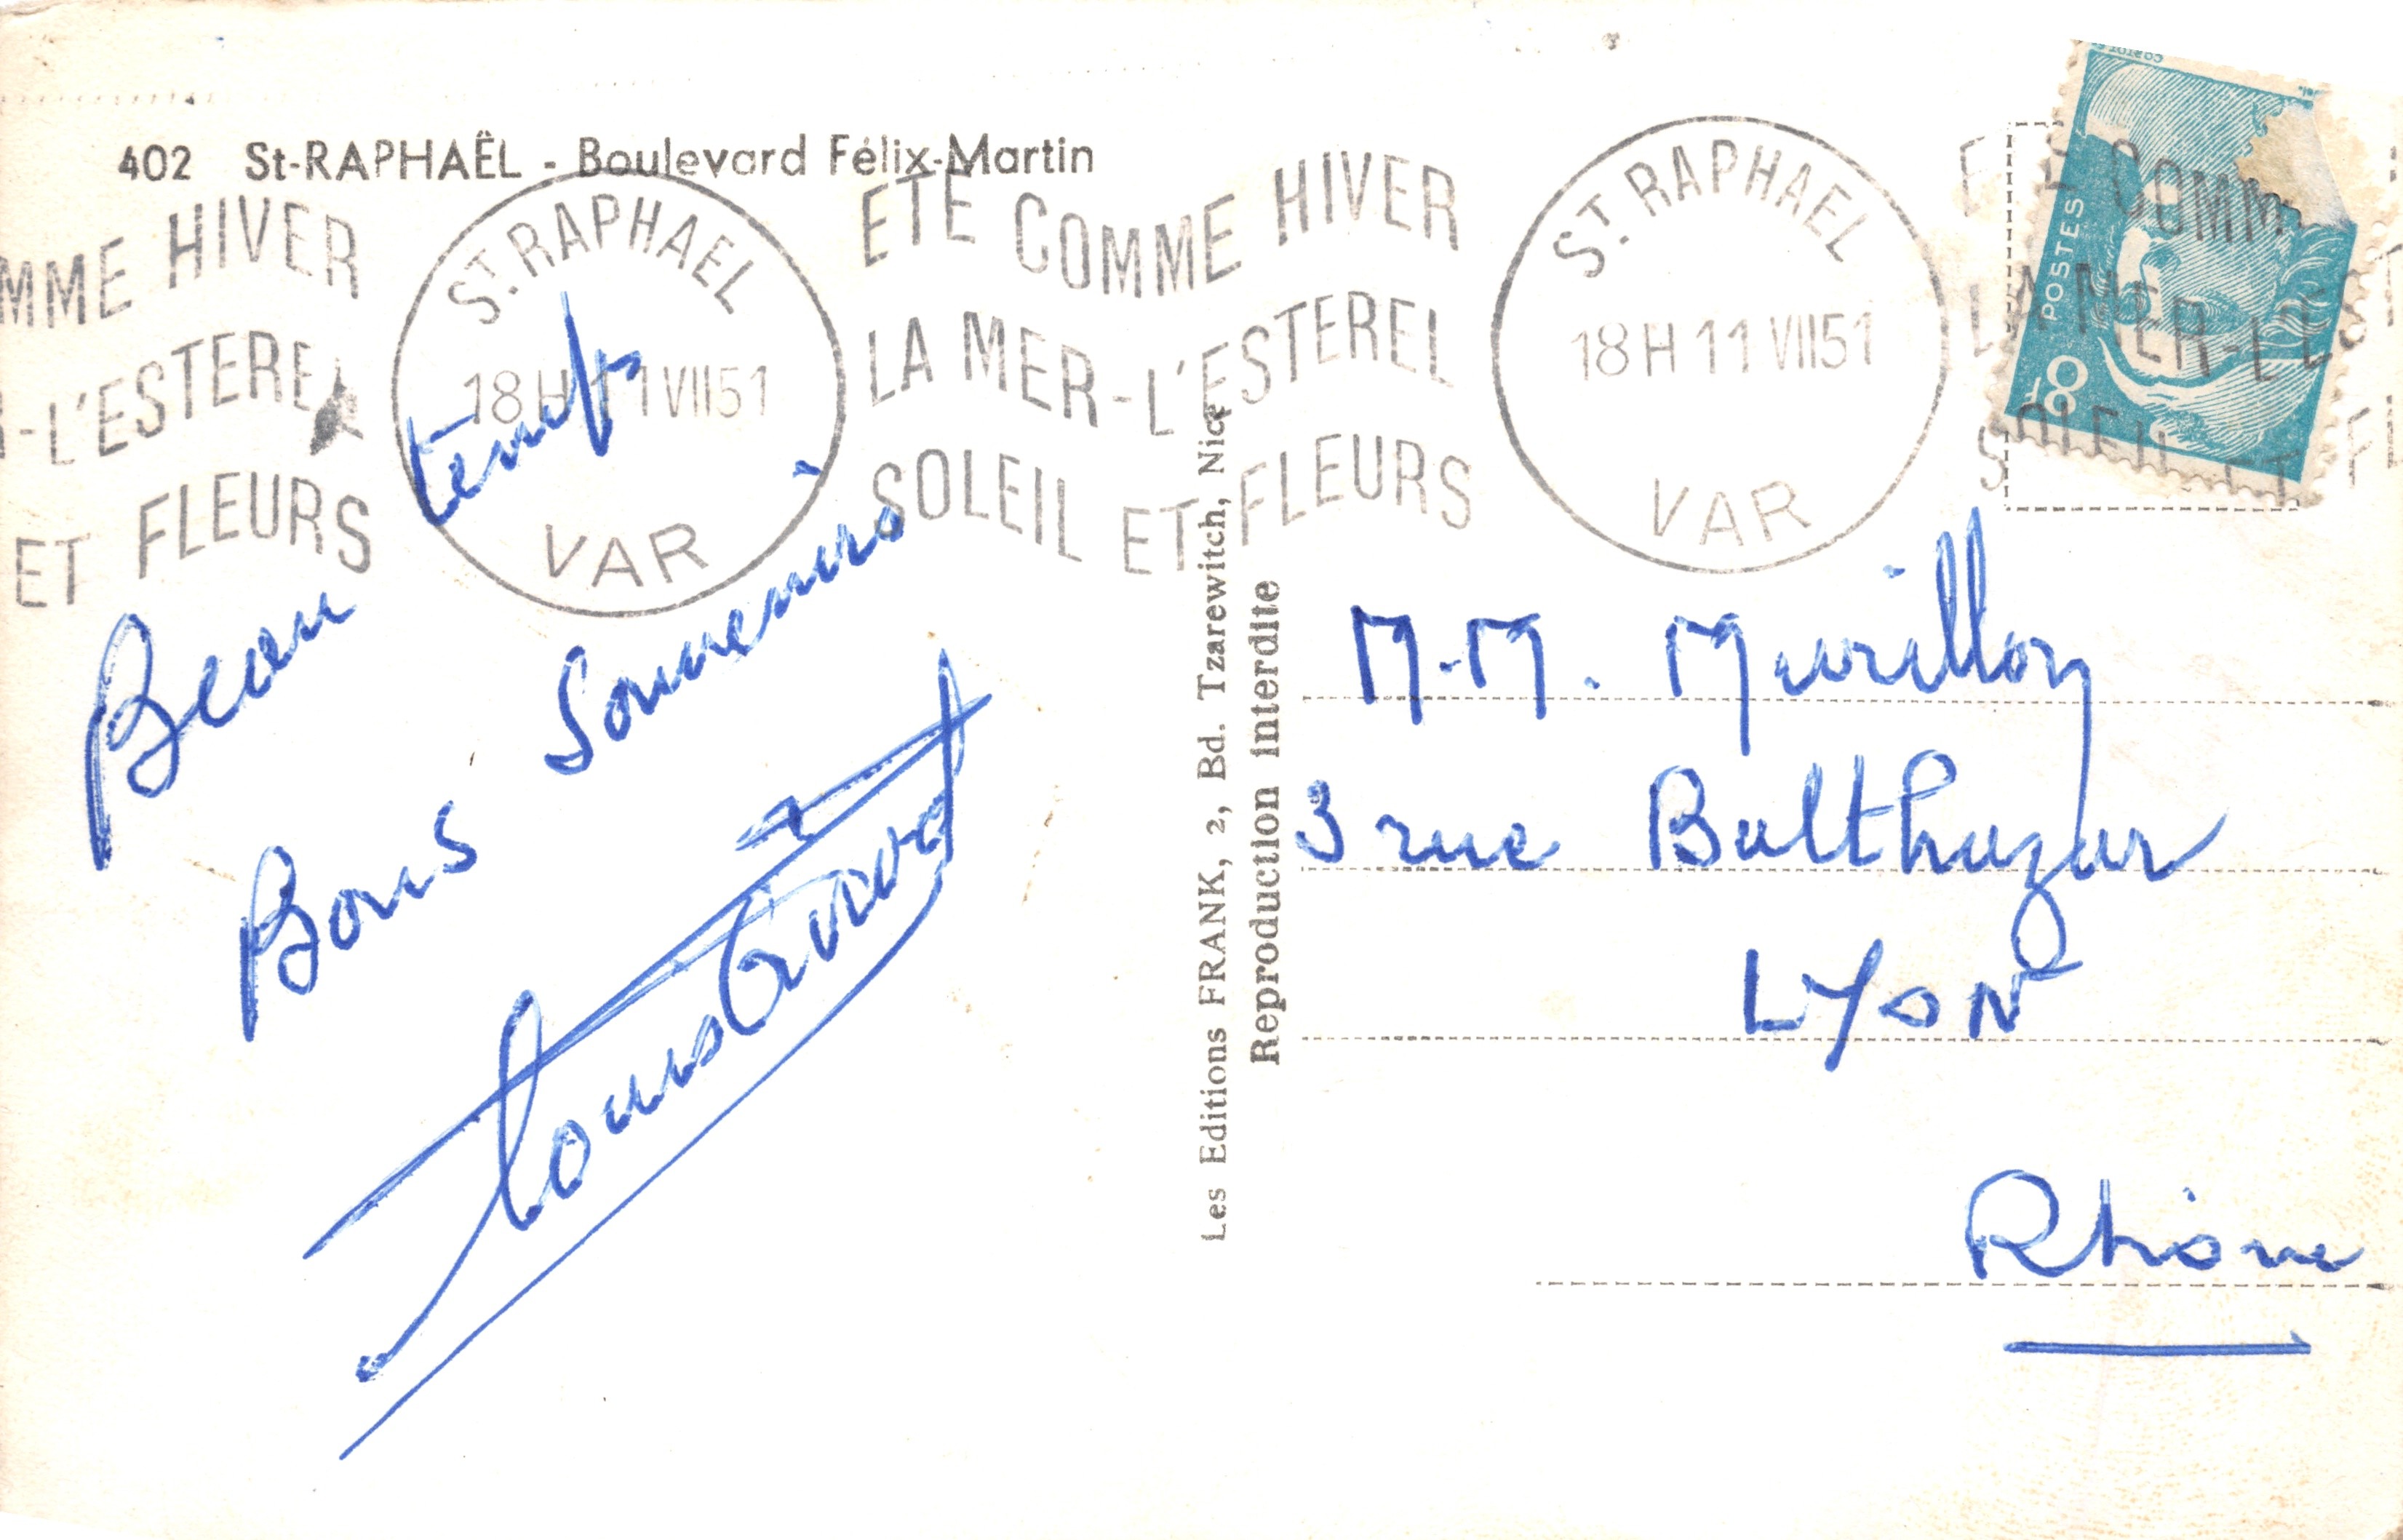 402 St-RAPHAËL - Boulevard Félix-Martin
MME HIVER
-L'ESTEREL
ET FLEURS
ST. RAPHAEL
18H 11 VII51
VAR
ETE COMME HIVER
LA MER-L'ESTEREL
SOLEIL ET FLEURS
ST. RAPHAEL
18H 11 VII51
VAR
E COMM
LA MER-L'EST
SOLEIL ET FL
POSTES
18F
Beau temps
Bons Souvenirs
Louis
Les Editions FRANK, 2, Bd. Tzarewitch, Nice
Reproduction interdite
M.M. Murillon
3 rue Balthazar
LYON
Rhône